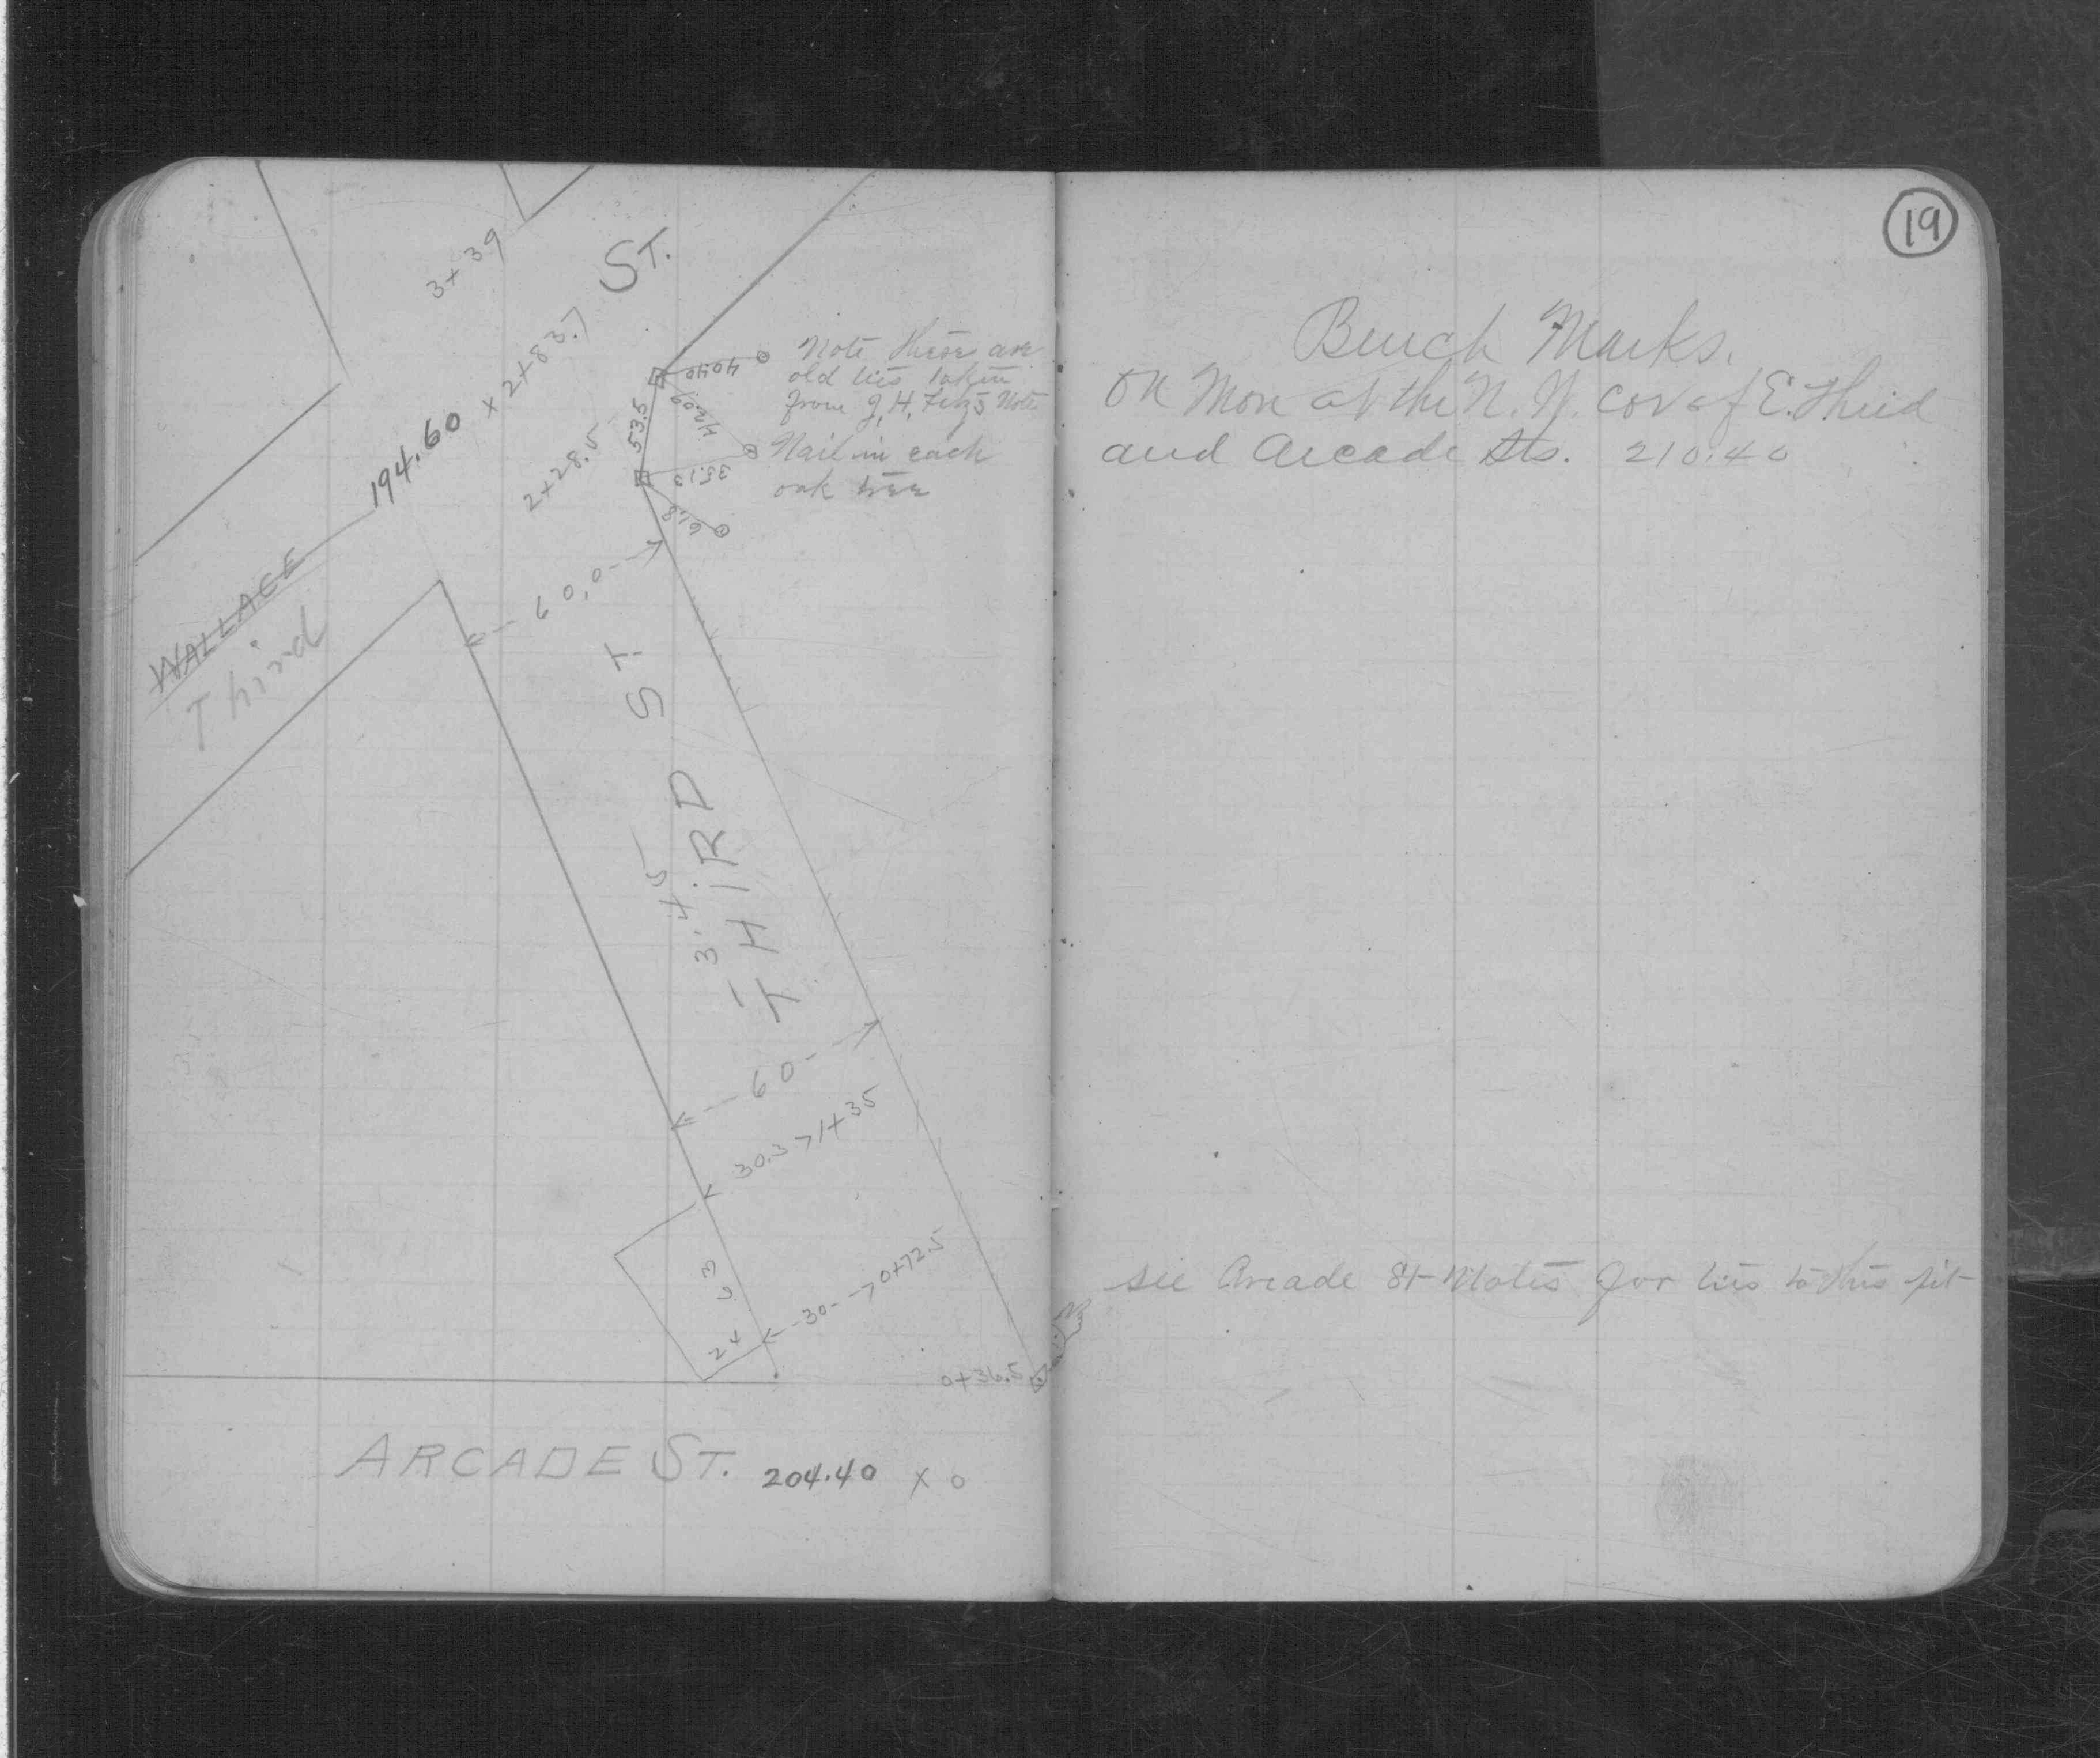 3+39
ST.
194.60 x 2+83.7
2+28.5
WALLACE
Third
53.5
40.40
40.9
35.13
61.8
Note these are
old ties taken
from J, H,
Nail in each
oak tree
60.0
THiRD ST.
3.45
60
30.3 1+35
24
30 0+72.5
0+36.5
ARCADE ST. 204.40 x 0
19
Bench Marks.
On Mon at the N. W. cor of E. Third
and Arcade Sts. 210.40
see Arcade St Notes for ties to this